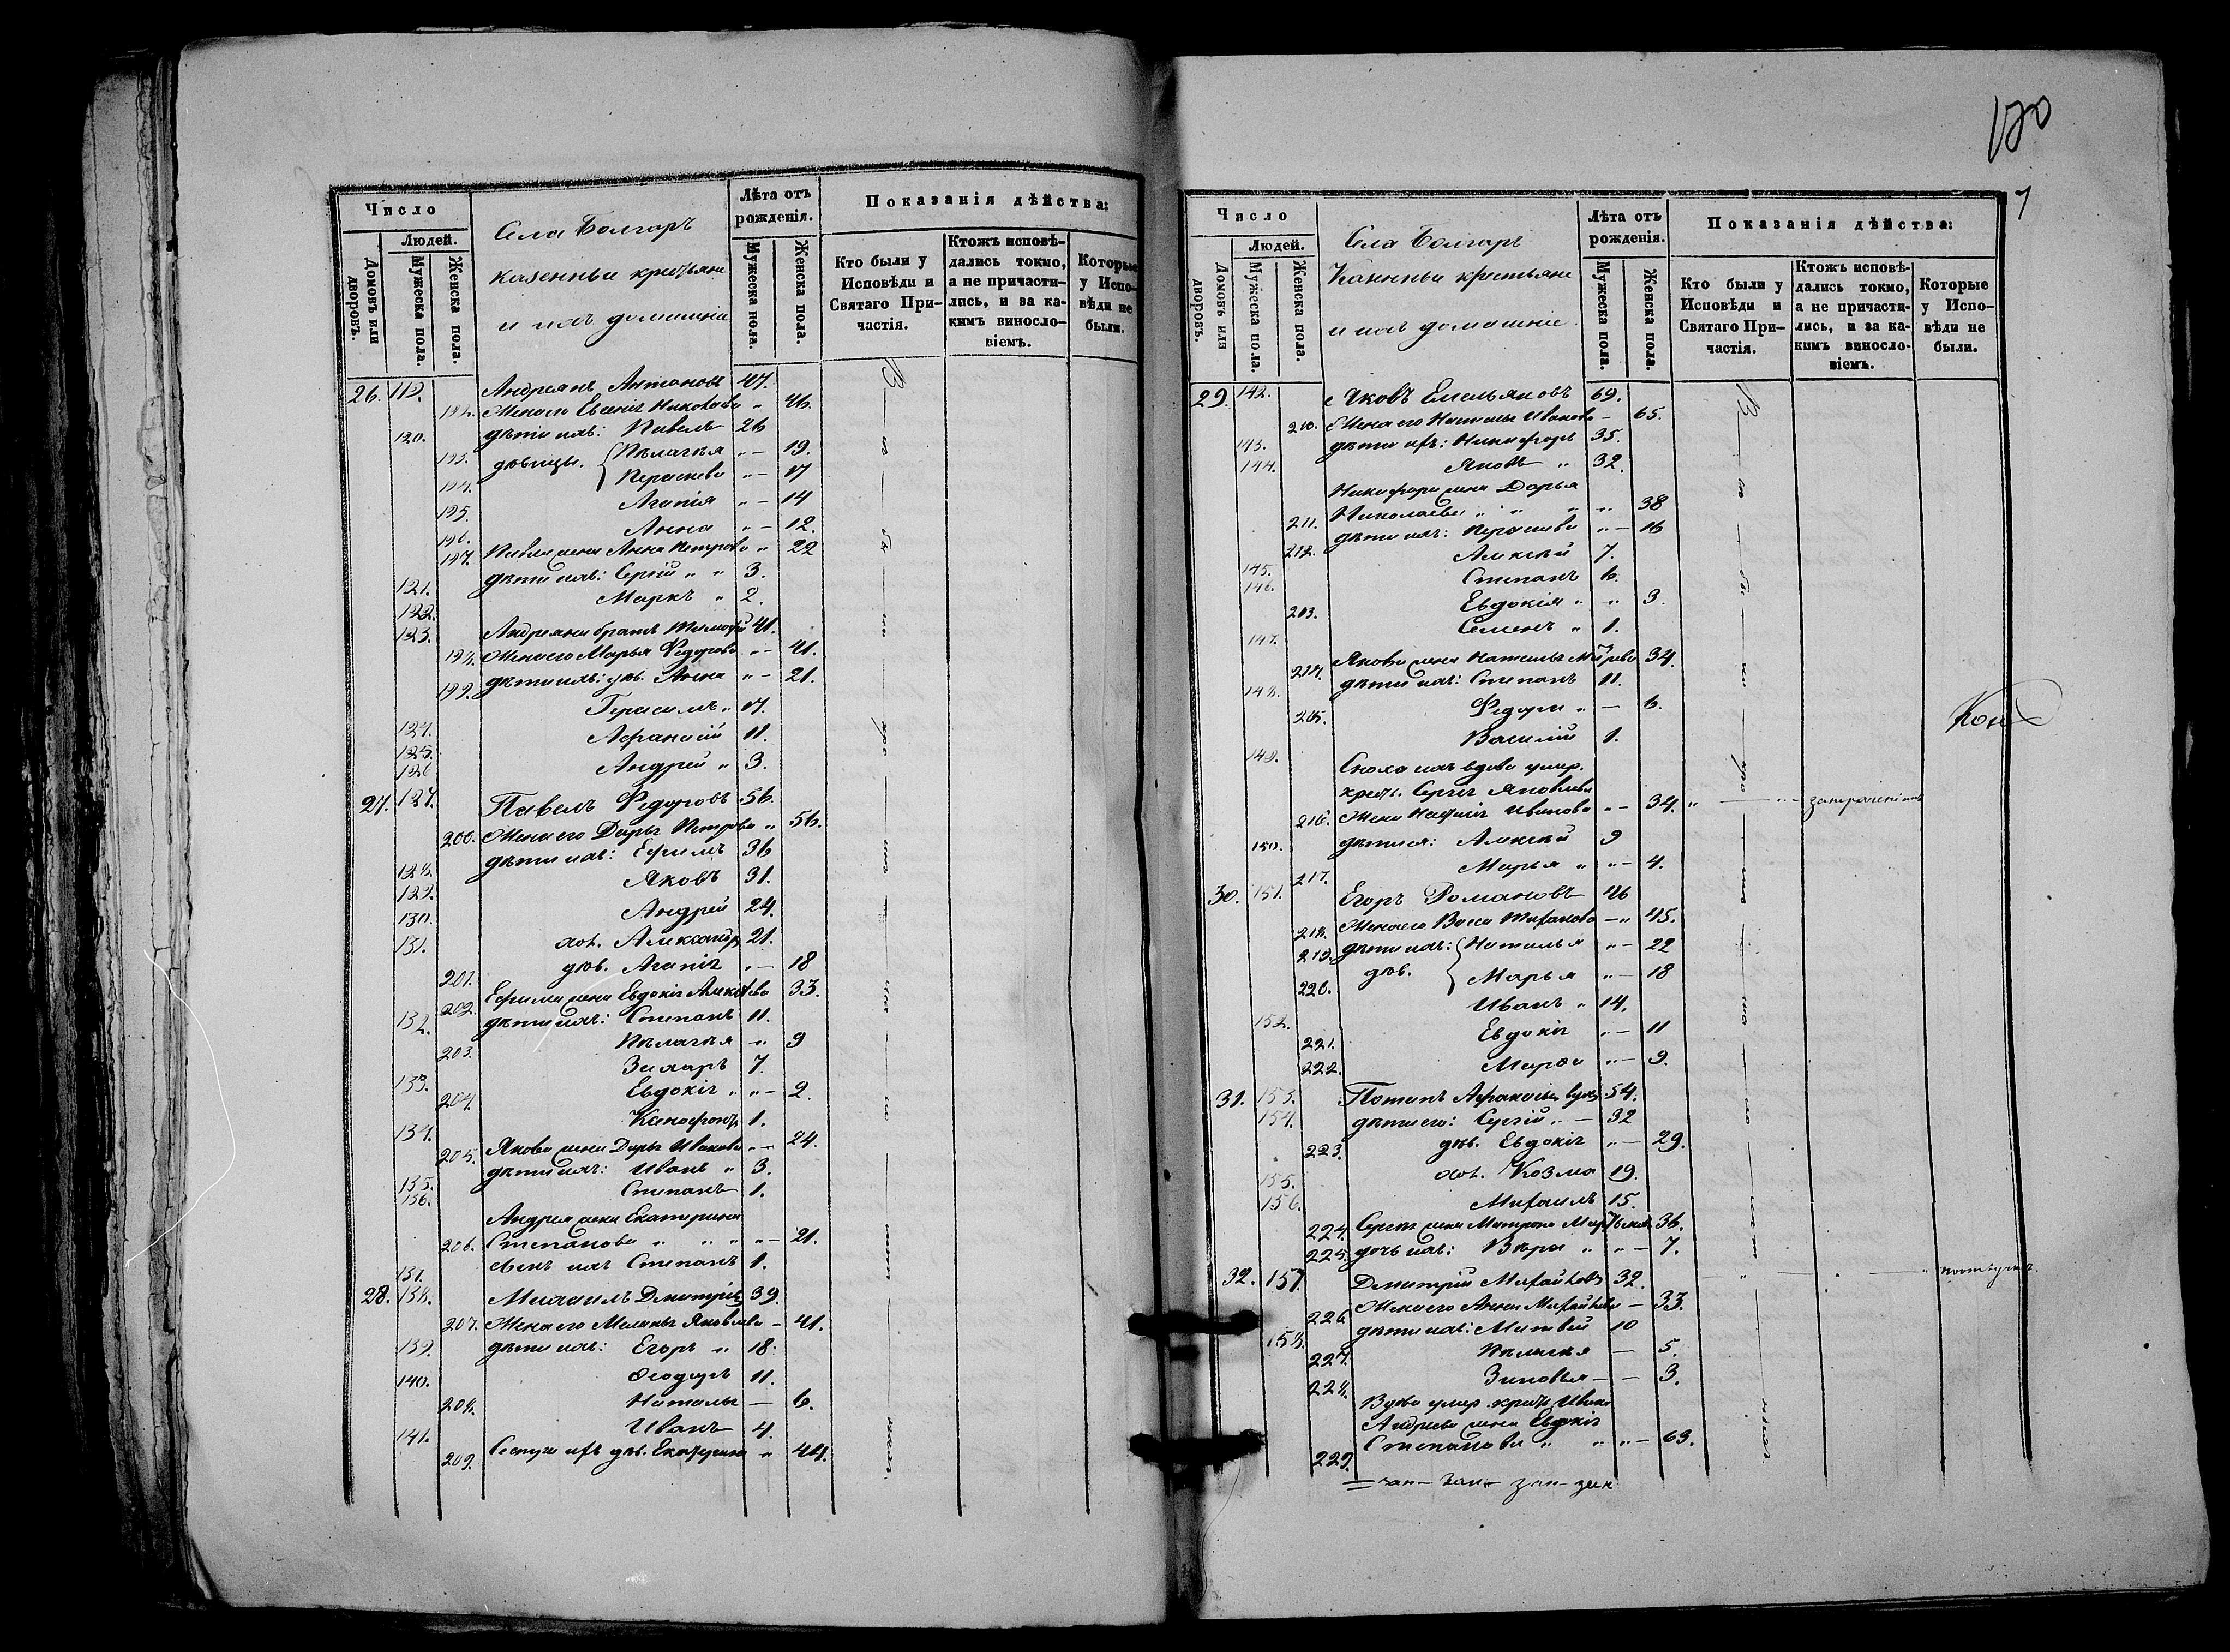 120
7
Число
Людей.
Домовъ или дворовъ.
Мужеска пола.
Женска пола.
Села Болгаръ
казенныи крестьяне
и ихъ домашніе
Лѣта отъ рожденія.
Мужеска пола.
Женска пола.
Показанія дѣйства:
Кто были у Исповѣди и Святаго Причастія.
Ктожъ исповѣдались токмо, а не причастились, и за какимъ винословіемъ.
Которые у Исповѣди не были.
26. 119. Андреянъ Антоновъ 47.
192. Жена его Евгенія Николаева " 46.
120. дѣти ихъ: Павелъ 26
193. дѣвицы. Пелагѣя " — 19.
194. Параскева " — 17
195. Агапія " — 14
196. Анна " — 12.
197. Павла жена Анна Петрова " 22
121. дѣти ихъ: Сергій " " 3.
122. Маркъ " 2.
123. Андреяна братъ Тимофей 41.
198. Жена его Марья Федорова " — 41.
199. дѣти ихъ: дѣв. Анна " — 21.
124. Герасимъ " 17.
125. Афанасій 11.
126 Андрей " 3.
27. 127. Павелъ Федоровъ 56.
200. Жена его Дарья Петрова " 56.
128. дѣти ихъ: Ефимъ 36
129. Яковъ 31.
130. Андрей 24.
131. хол. Александръ 21.
201. дѣв. Агапія " — 18
202. Ефима жена Евдокія 33.
132. дѣти ихъ: Степанъ 11.
203. Пелагѣя " 9
133. Захаръ 7.
204. Евдокія " " — 2.
134. Ксенофонтъ 1.
205. Якова жена Дарья Иванова " — 24.
135. дѣти ихъ: Иванъ " 3.
136. Степанъ 1.
Андрея жена Екатерина
206. Степанова " " " " — 21.
137. сынъ ихъ Степанъ 1.
28. 138. Михаилъ Дмитріевъ 39.
207. Жена его Меланья Яковлева — 41.
139. дѣти ихъ: Егоръ " 18.
140. Ѳеодоръ 11.
208. Наталья — 6.
141. Иванъ 4.
209. Сестра ихъ дѣв. Екатерина " 44.
Число
Людей.
Домовъ или дворовъ.
Мужеска пола.
Женска пола.
Села Болгаръ
Казенныи крестьяне
и ихъ домашніе.
Лѣта отъ рожденія.
Мужеска пола.
Женска пола.
Показанія дѣйства:
Кто были у Исповѣди и Святаго Причастія.
Ктожъ исповѣдались токмо, а не причастились, и за какимъ винословіемъ.
Которые у Исповѣди не были.
29. 142. Яковъ Емельяновъ 69.
210. Жена его Наталья Иванова — 65.
143. дѣти ихъ: Никифоръ 35.
144. Яковъ " 32.
Никифора жена Дарья
211. Николаева " " " " 38
212. дѣти ихъ: Параскева " — 16
145. Алексѣй 7.
146. Степанъ 6.
213. Евдокія " " 3.
147. Семенъ " 1.
214. Якова жена Наталья 34.
148. дѣти ихъ: Степанъ 11.
215. Федора " — 6.
149. Василій 1.
Сноха ихъ вдова умер.
крест. Сергія Яковлева
216. Жена Иванова " — 34.
150. дѣти ея: Алексѣй 9
217. Марья " " — 4.
30. 151. Егоръ Романовъ 46
218. Жена его — " 45.
219. дѣти ихъ: Наталья " — 22
220. дѣв. Марья " — 18
152. Иванъ " 14.
221. Евдокія " — 11
222. Марѳа " — 9.
31. 153. Потапъ Афанасьевъ вдов. 54.
154. дѣти его: Сергій " — 32
223. дѣв. Евдокія " — 29.
155. хол. Козма 19.
156. Михаилъ 15.
224. Сергѣя жена Матрона 36.
225. дочь ихъ: Вѣра " " — 7.
32. 157. Дмитрій Михайловъ 32.
226. Жена его Анна Михайлова — 33.
158. дѣти ихъ: Матвѣй 10
227. Пелагѣя — 5.
228. Зиновья — — 3.
Вдова умер. крест. Ивана
Андреева жена Евдокія
229. Степанова " " " — 63.